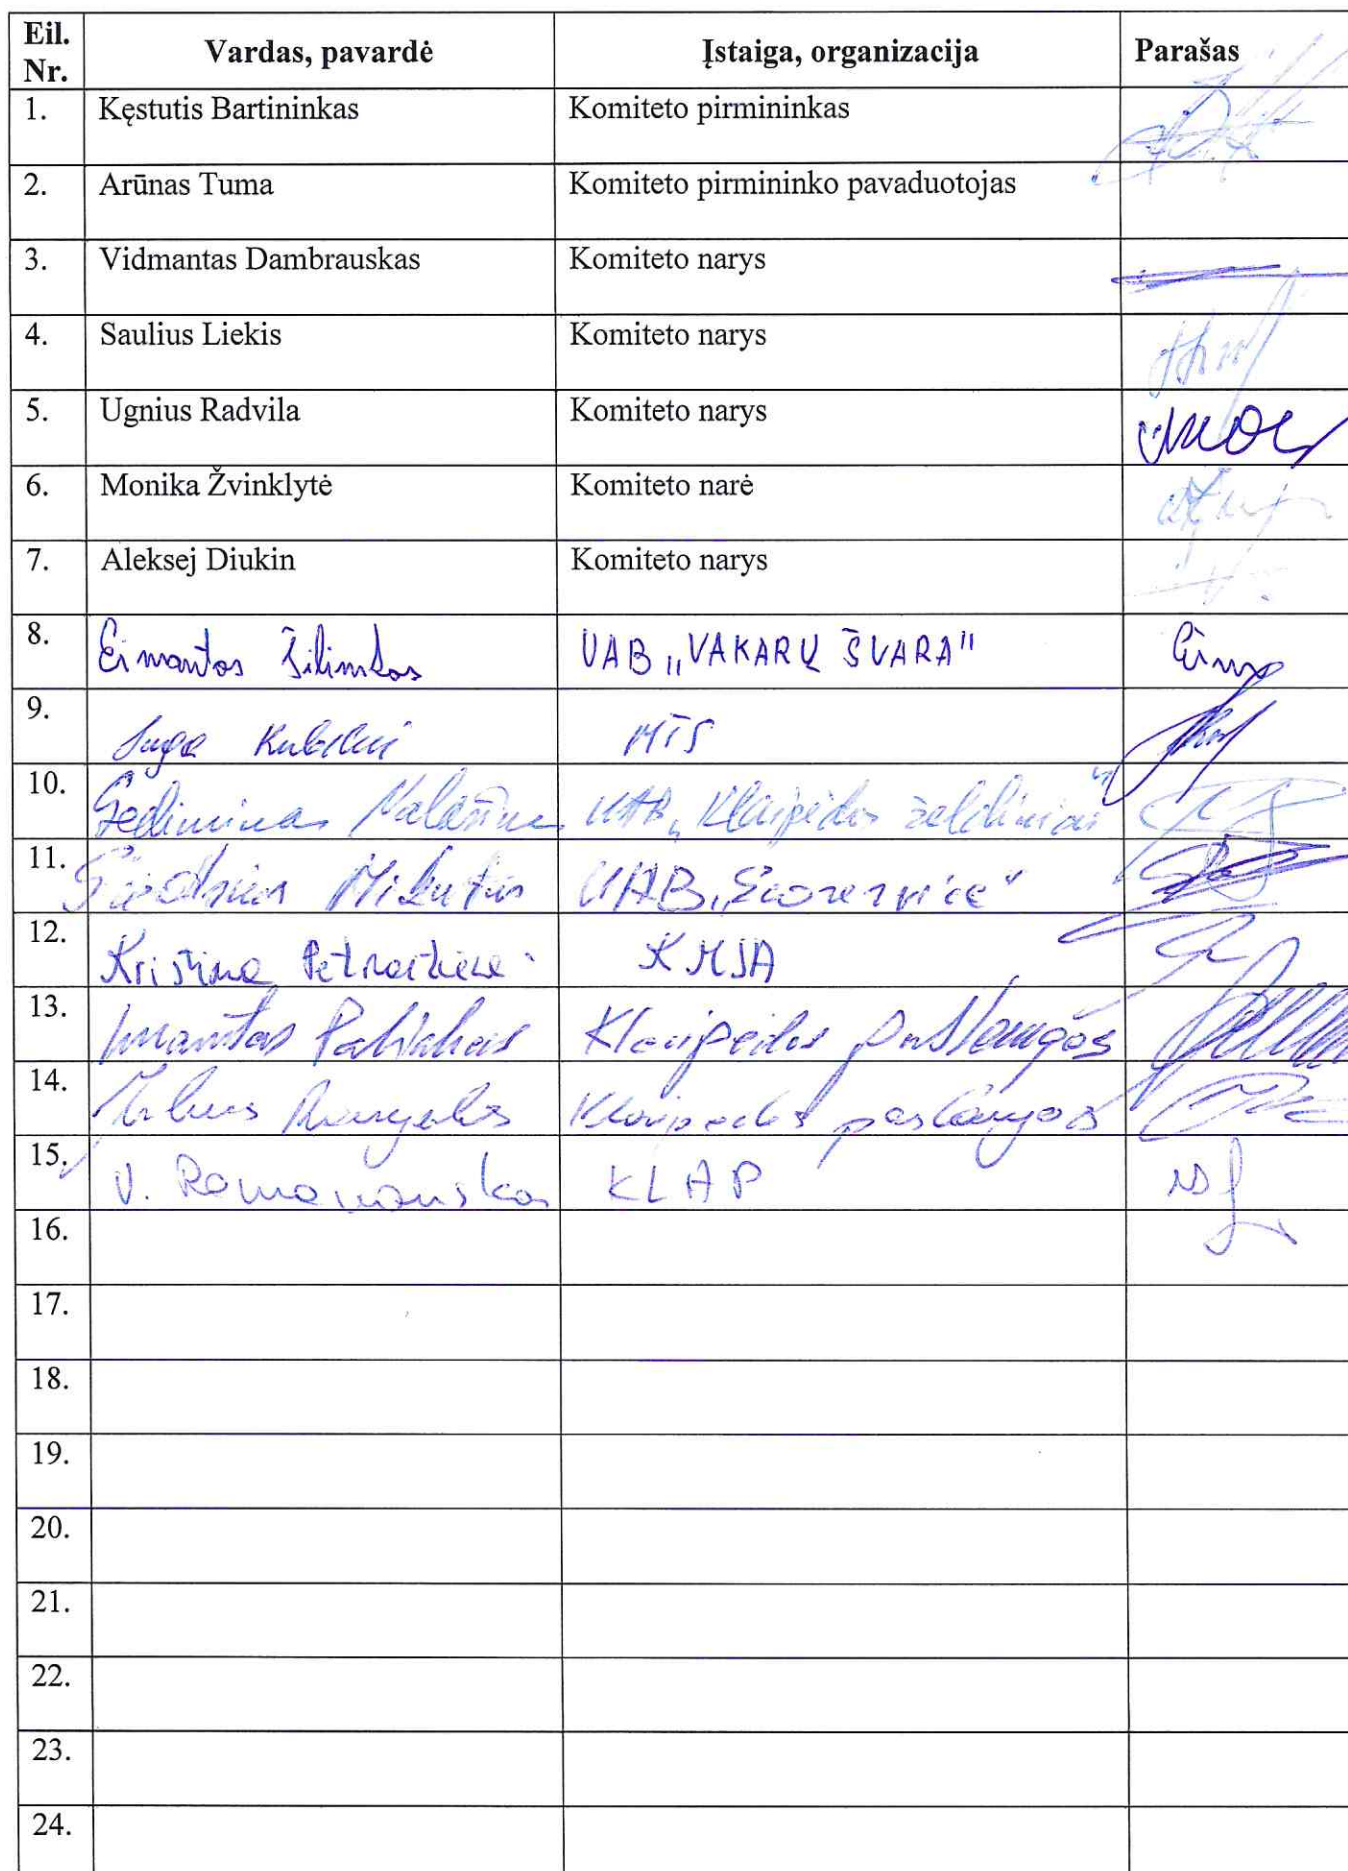 Eil. Nr. Vardas, pavardė Įstaiga, organizacija Parašas
1. Kęstutis Bartininkas Komiteto pirmininkas
2. Arūnas Tuma Komiteto pirmininko pavaduotojas
3. Vidmantas Dambrauskas Komiteto narys
4. Saulius Liekis Komiteto narys
5. Ugnius Radvila Komiteto narys
6. Monika Žvinklytė Komiteto narė
7. Aleksej Diukin Komiteto narys
8. Eimantas UAB „VAKARŲ ŠVARA"
9. MTS
10. Gediminas UAB „Klaipėdos želdiniai"
11. UAB „Ecoservice"
12. Kristina KMSA
13. Klaipėdos paslaugos
14. Klaipėdos paslaugos
15. V. Ramanauskas KLAP
16.
17.
18.
19.
20.
21.
22.
23.
24.